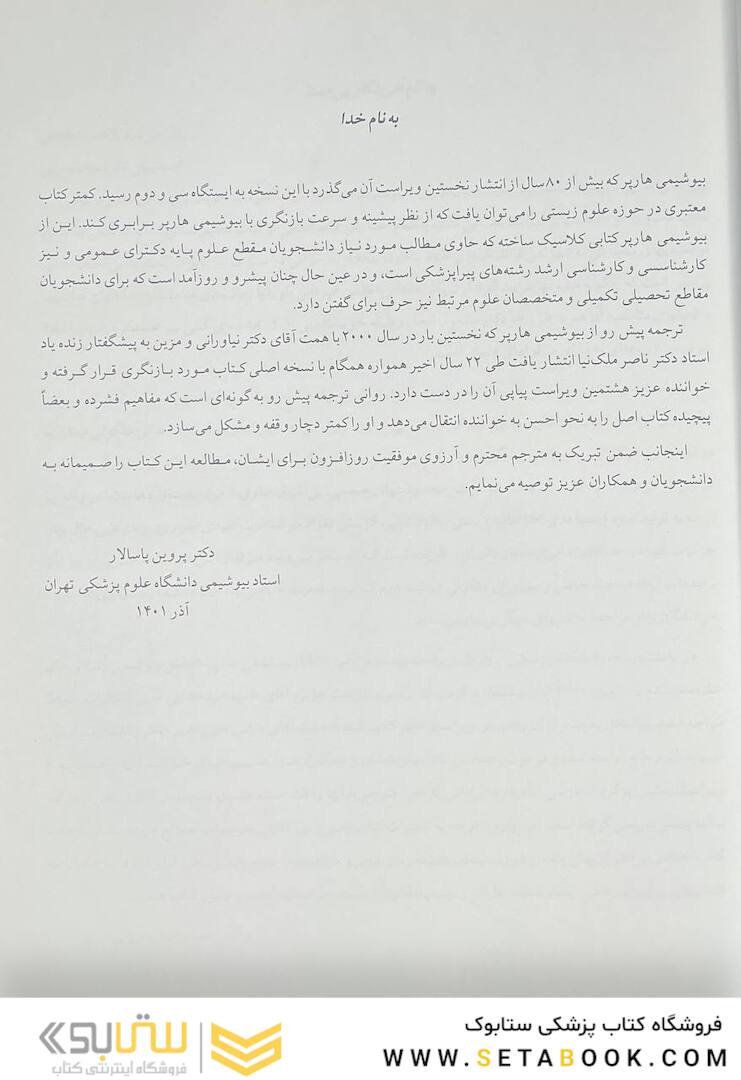 به نام خدا
بیوشیمی هارپر که بیش از ۸۰ سال از انتشار نخستین ویراست آن می‌گذرد با این نسخه به ایستگاه سی و دوم رسید. کمتر کتاب
معتبری در حوزه علوم زیستی را می‌توان یافت که از نظر پیشینه و سرعت بازنگری با بیوشیمی هارپر برابری کند. این از
بیوشیمی هارپر کتابی کلاسیک ساخته که حاوی مطالب مورد نیاز دانشجویان مقطع علوم پایه دکترای عمومی و نیز
کارشناسی و کارشناسی ارشد رشته‌های پیراپزشکی است، و در عین حال چنان پیشرو و روزآمد است که برای دانشجویان
مقاطع تحصیلی تکمیلی و متخصصان علوم مرتبط نیز حرف برای گفتن دارد.
ترجمه پیش رو از بیوشیمی هارپر که نخستین بار در سال ۲۰۰۰ با همت آقای دکتر نیاورانی و مزین به پیشگفتار زنده یاد
استاد دکتر ناصر ملک‌نیا انتشار یافت طی ۲۲ سال اخیر همواره همگام با نسخه اصلی کتاب مورد بازنگری قرار گرفته و
خواننده عزیز هشتمین ویراست پیاپی آن را در دست دارد. روانی ترجمه پیش رو به گونه‌ای است که مفاهیم فشرده و بعضاً
پیچیده کتاب اصل را به نحو احسن به خواننده انتقال می‌دهد و او را کمتر دچار وقفه و مشکل می‌سازد.
اینجانب ضمن تبریک به مترجم محترم و آرزوی موفقیت روزافزون برای ایشان، مطالعه این کتاب را صمیمانه به
دانشجویان و همکاران عزیز توصیه می‌نمایم.
دکتر پروین پاسالار
استاد بیوشیمی دانشگاه علوم پزشکی تهران
آذر ۱۴۰۱
فروشگاه کتاب پزشکی ستابوک
WWW.SETABOOK.COM
ستابوک
فروشگاه اینترنتی کتاب